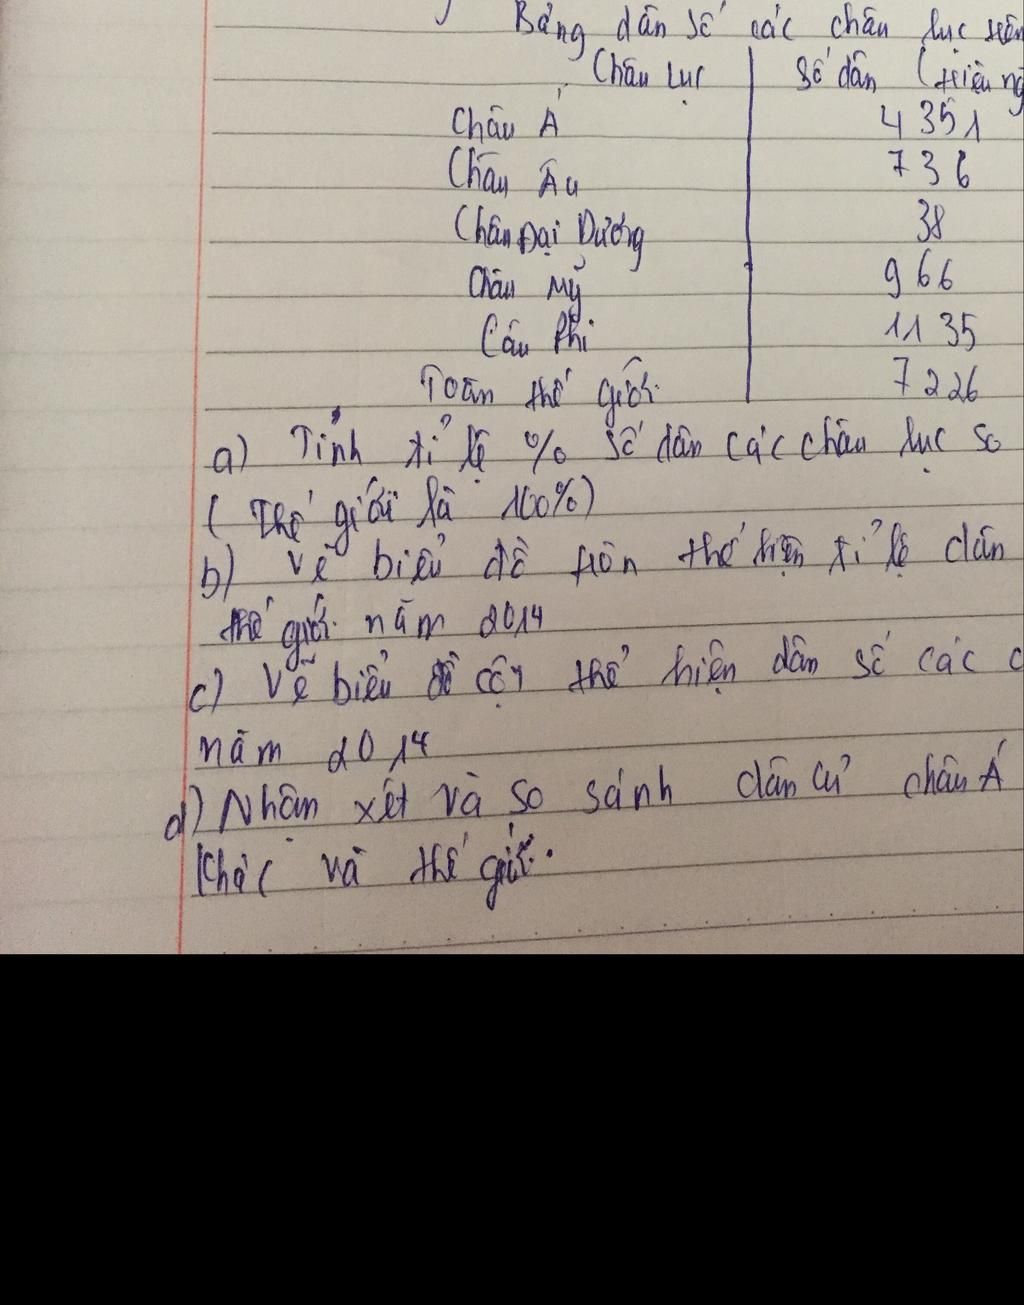 Bảng dân số các châu lục trên
Châu Lục Số dân (triệu ng
Châu Á 4 351
Châu Âu 736
Châu Đại Dương 38
Châu Mỹ 966
Câu Phi 11 35
Toàn thế giới 7 226
a) Tính tỉ lệ % số dân các châu lục so
( Thế giới là 100%)
b) Vẽ biểu đồ tròn thể hiện tỉ lệ dân
thế giới năm 2014
c) Vẽ biểu đồ cột thể hiện dân số các c
năm 2014
d) Nhận xét và so sánh dân cư châu Á
Khác và thế giới.